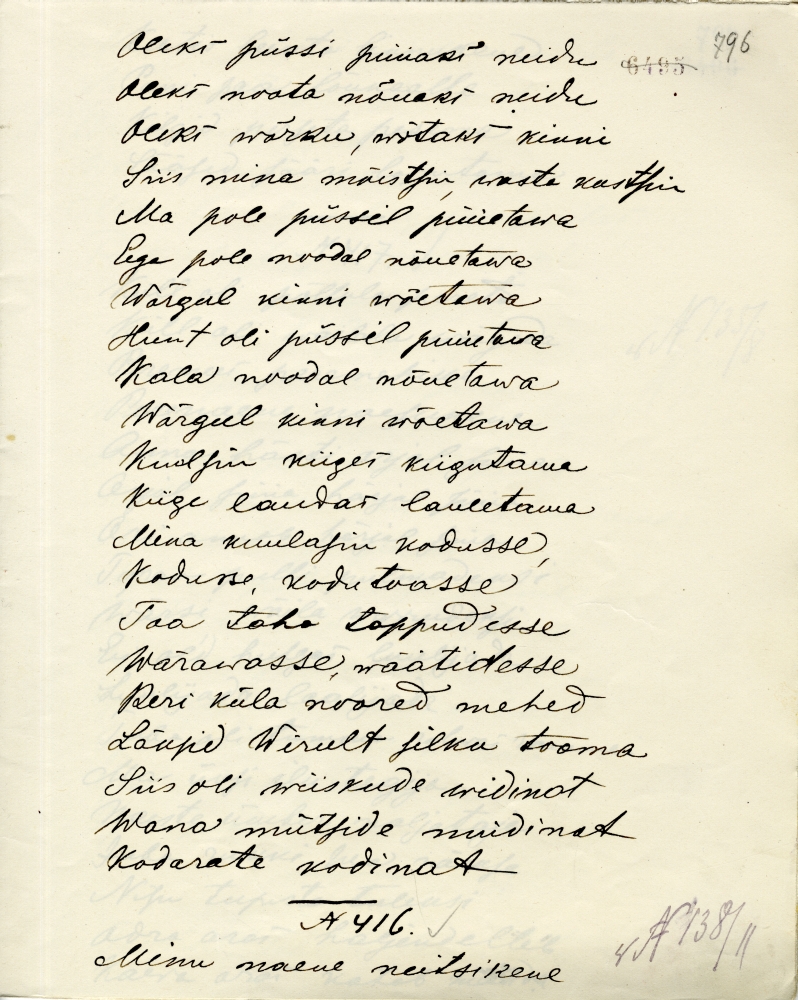 796
6495
Oleks püssi püüaks neidu
Oleks noota nõuaks neidu
Oleks wõrku, wõtaks kinni
Siis mina mõistsin, wasta kostsin
Ma pole püssil püüetawa
Ega pole noodal nõuetawa
Wõrgul kinni wõetawa
Hunt oli püssil püüetawa
Kala noodal nõuetawa
Wõrgul kinni wõetawa
Kuulsin kiiges kiigutama
Kiige laudas lauletama
Mina kuulasin kodusse,
Kodusse, kodu toasse
Taa taha tappudesse
Wärawasse, wäätidesse
Peri küla noored mehed
Läksid Wirult silku tooma
Siis oli wiiskude widinat
Wana mütside müdinat
Kodarate kodinat
№ 416.
№ 138/11
Minu naene neitsikene